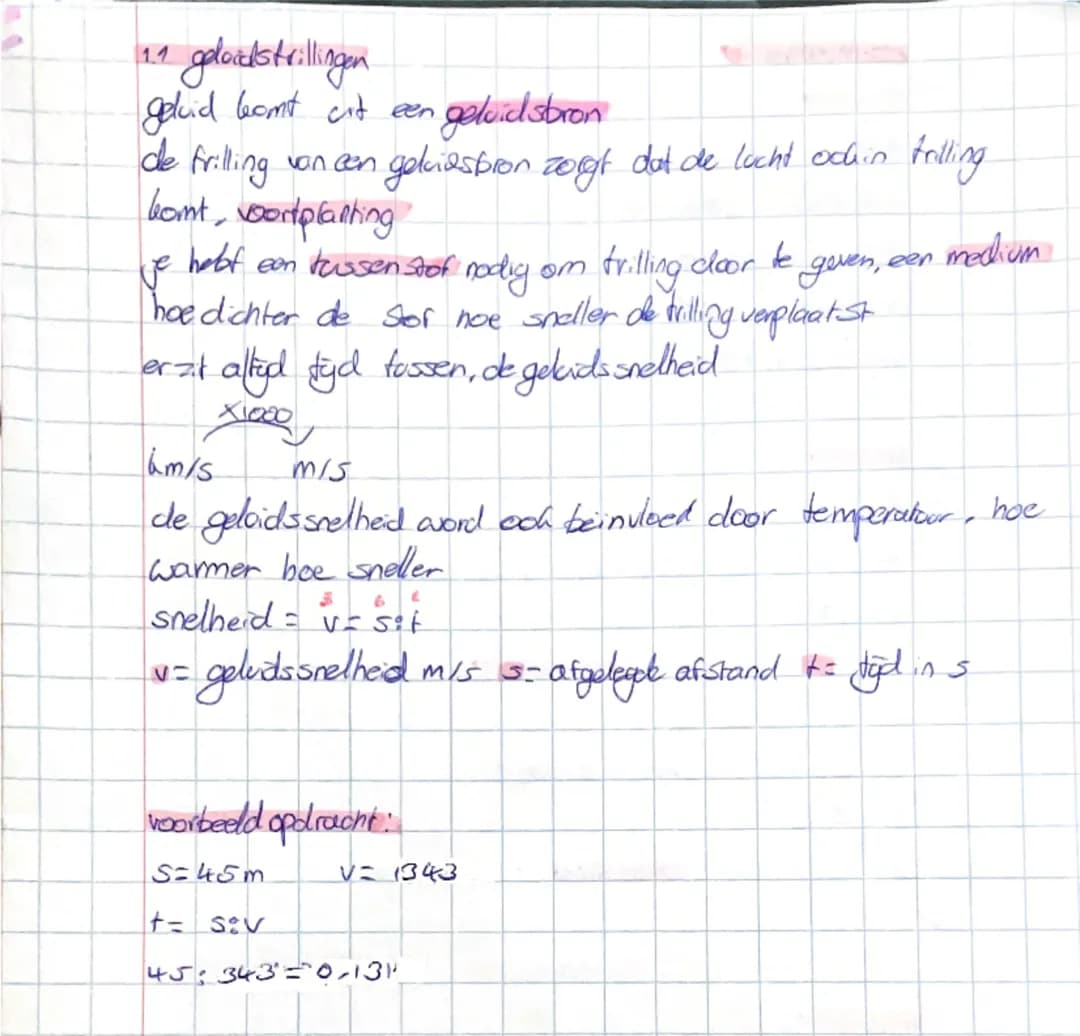 1.1 geluidstrillingen
geluid komt uit een geluidsbron
de trilling van een geluidsbron zorgt dat de lucht ook in trilling
komt, voortplanting
je hebt een tussenstof nodig om trilling door te geven, een medium
hoe dichter de stof hoe sneller de trilling verplaatst
er zit altijd tijd tussen, de geluidssnelheid
x1000
km/s m/s
de geluidssnelheid word ook beinvloed door temperatuur, hoe
warmer hoe sneller
3 6 2
snelheid = v = s:t
v = geluidssnelheid m/s s = afgelegde afstand t = tijd in s
voorbeeld opdracht:
s = 45 m v = 1343
t = s:v
45 : 343 = 0,131